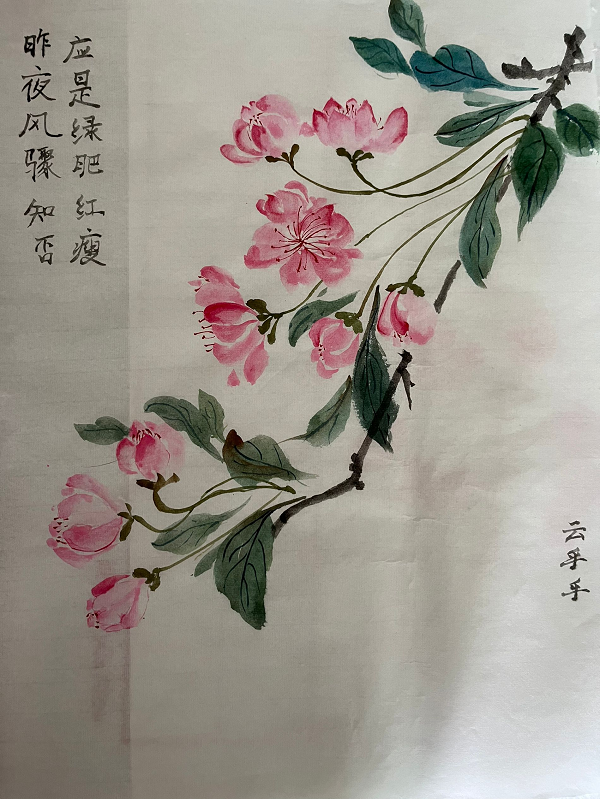 昨夜风骤知否
应是绿肥红瘦
云乎乎